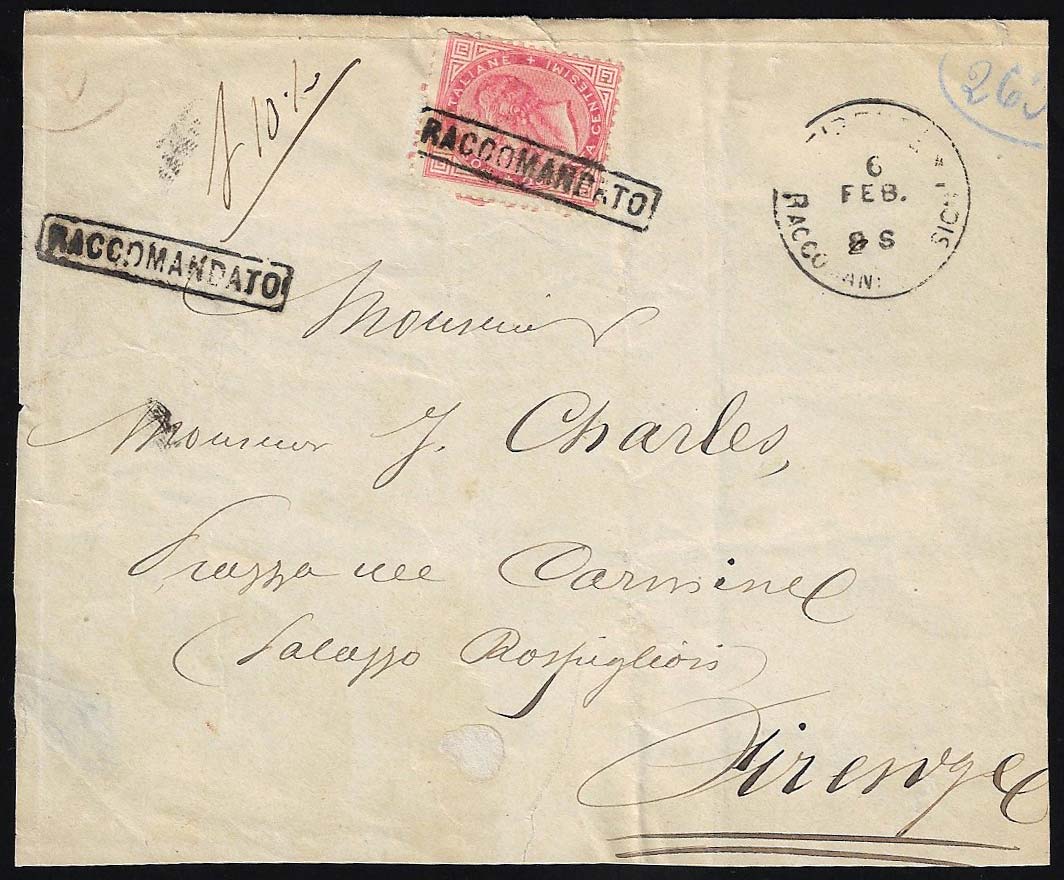 TALIANE + A CENTESIMI
RACCOMANDATO
£ 10.%
263
6
FEB.
S
RACCOMAN
SICI
RACCOMANDATO
Monsieur
Monsieur J. Charles,
Piazza del Carmine
Palazzo Rospigliosi
Firenze